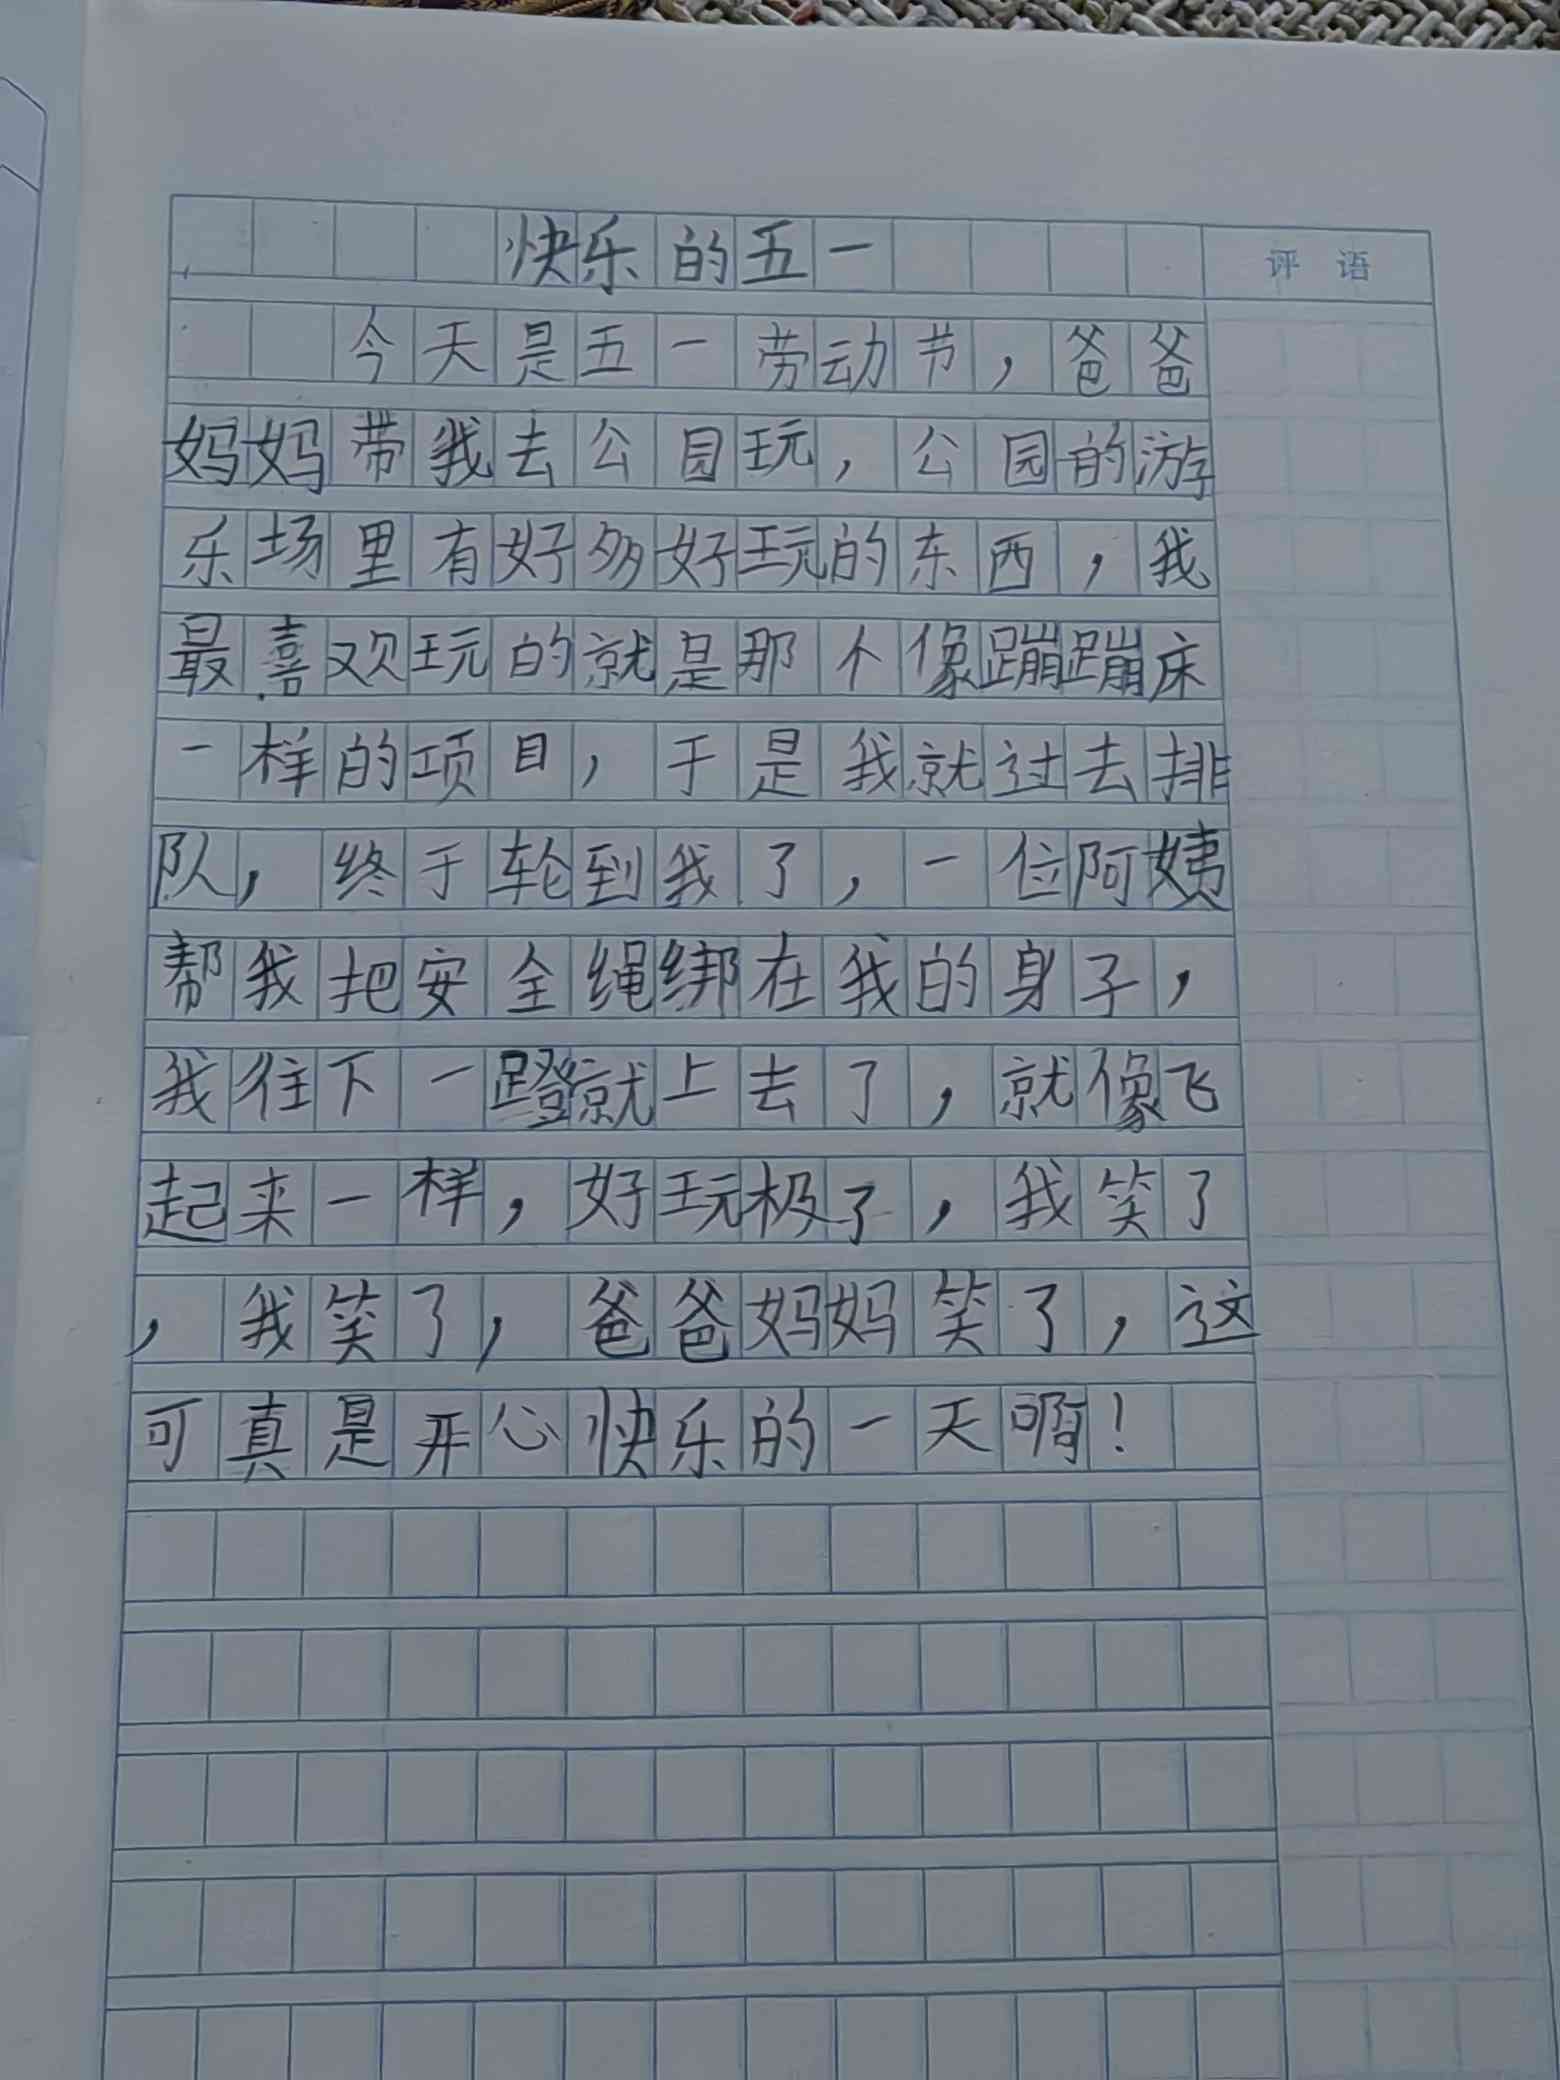 快乐的五一
评语
今天是五一劳动节，爸爸
妈妈带我去公园玩，公园的游
乐场里有好多好玩的东西，我
最喜欢玩的就是那个像蹦蹦床
一样的项目，于是我就过去排
队，终于轮到我了，一位阿姨
帮我把安全绳绑在我的身子，
我往下一蹬就上去了，就像飞
起来一样，好玩极了，我笑了
，我笑了，爸爸妈妈笑了，这
可真是开心快乐的一天啊！